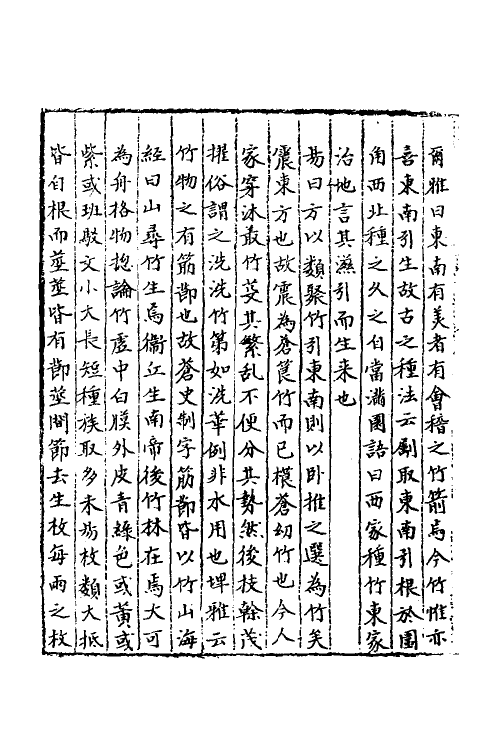 爾雅曰東南有美者有會稽之竹箭焉今竹惟亦
喜東南引生故古之種法云劚取東南引根於園
角西北種之久之自當滿園語曰西家種竹東家
治地言其滋引而生來也
易曰方以類聚竹引東南則以卧推之選為竹矣
震東方也故震為蒼筤竹而已横蒼幼竹也今人
家穿沐叢竹芟其繁乱不便分其勢然後枝幹茂
擢俗謂之洗洗竹第如洗華例非水用也埤雅云
竹物之有筋節也故蒼史制字筋節皆以竹山海
經曰山尋竹生焉衞丘生南帝後竹林在焉大可
為舟格物揔論竹虛中白膜外皮青綠色或黄或
紫或班駁文小大長短種族取多未易枚類大抵
皆自根而莖莖皆有節莖間節去生枚每兩之枚